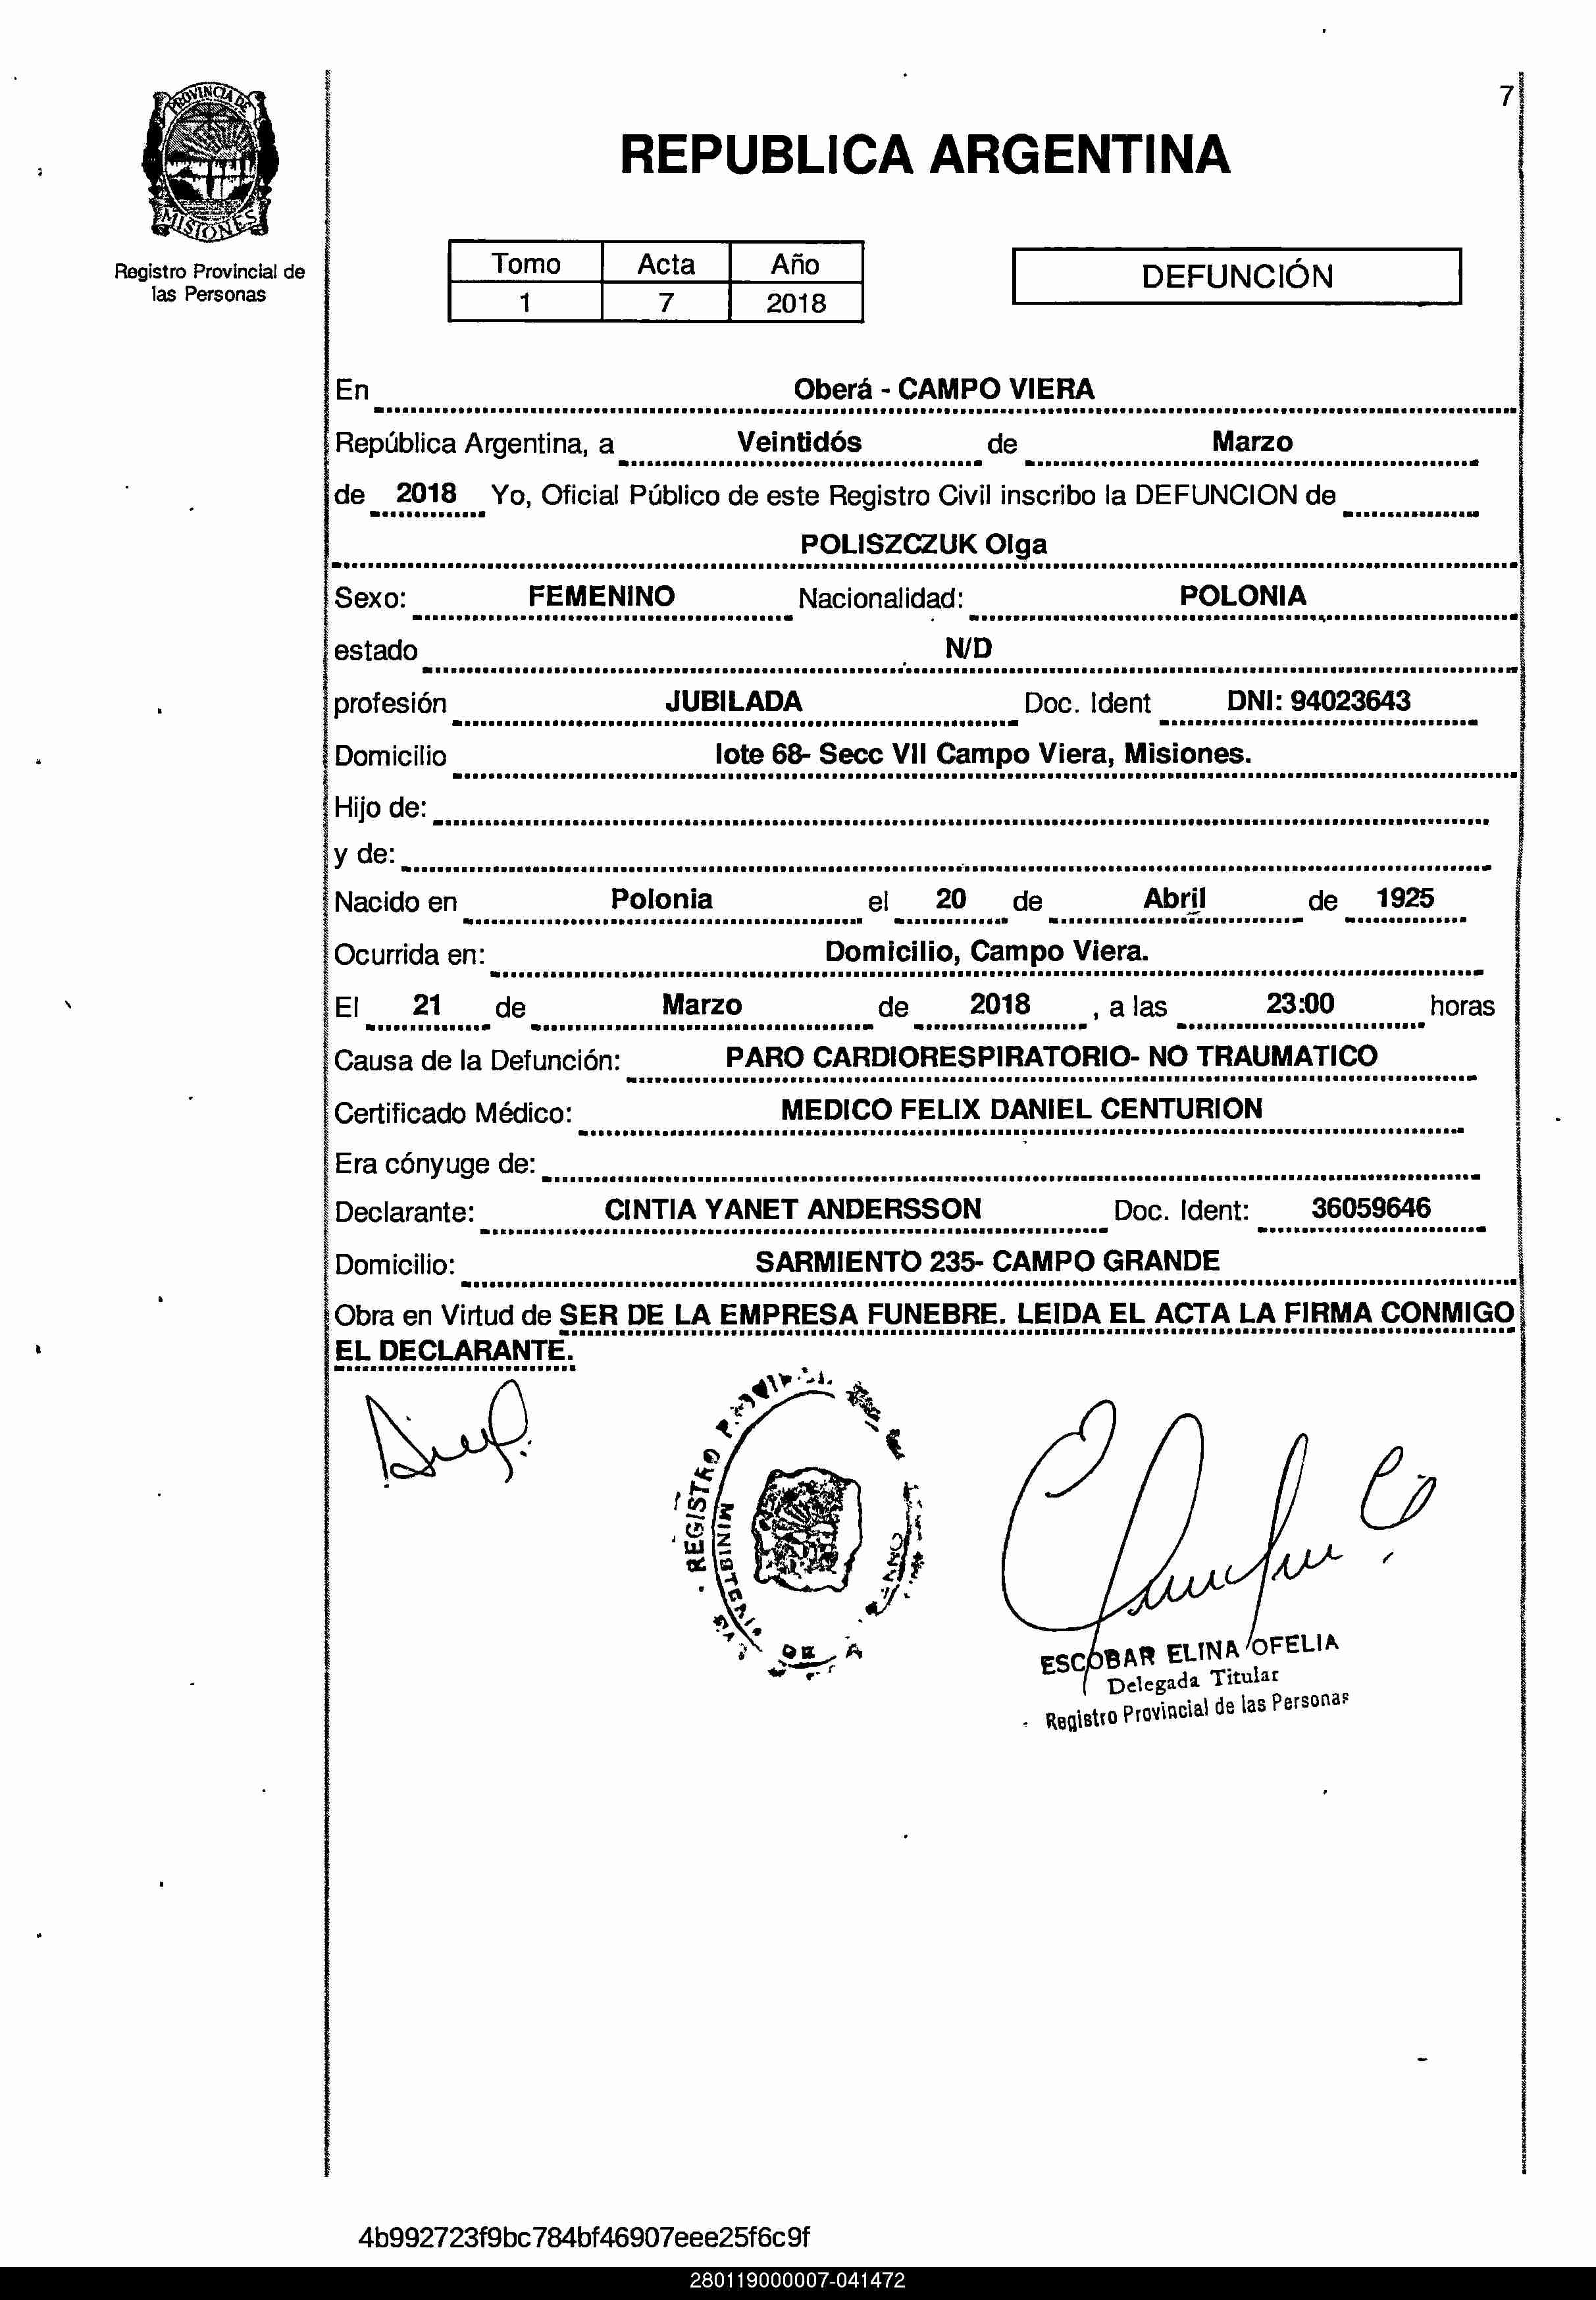 7
PROVINCIA DE
MISIONES
Registro Provincial de
las Personas
REPUBLICA ARGENTINA
Tomo Acta Año
1 7 2018
DEFUNCIÓN
En Oberá - CAMPO VIERA
República Argentina, a Veintidós de Marzo
de 2018 Yo, Oficial Público de este Registro Civil inscribo la DEFUNCION de
POLISZCZUK Olga
Sexo: FEMENINO Nacionalidad: POLONIA
estado N/D
profesión JUBILADA Doc. Ident DNI: 94023643
Domicilio lote 68- Secc VII Campo Viera, Misiones.
Hijo de:
y de:
Nacido en Polonia el 20 de Abril de 1925
Ocurrida en: Domicilio, Campo Viera.
El 21 de Marzo de 2018 , a las 23:00 horas
Causa de la Defunción: PARO CARDIORESPIRATORIO- NO TRAUMATICO
Certificado Médico: MEDICO FELIX DANIEL CENTURION
Era cónyuge de:
Declarante: CINTIA YANET ANDERSSON Doc. Ident: 36059646
Domicilio: SARMIENTO 235- CAMPO GRANDE
Obra en Virtud de SER DE LA EMPRESA FUNEBRE. LEIDA EL ACTA LA FIRMA CONMIGO
EL DECLARANTE.
REGISTRO
ESCOBAR ELINA OFELIA
Delegada Titular
Registro Provincial de las Personas
4b992723f9bc784bf46907eee25f6c9f
280119000007-041472